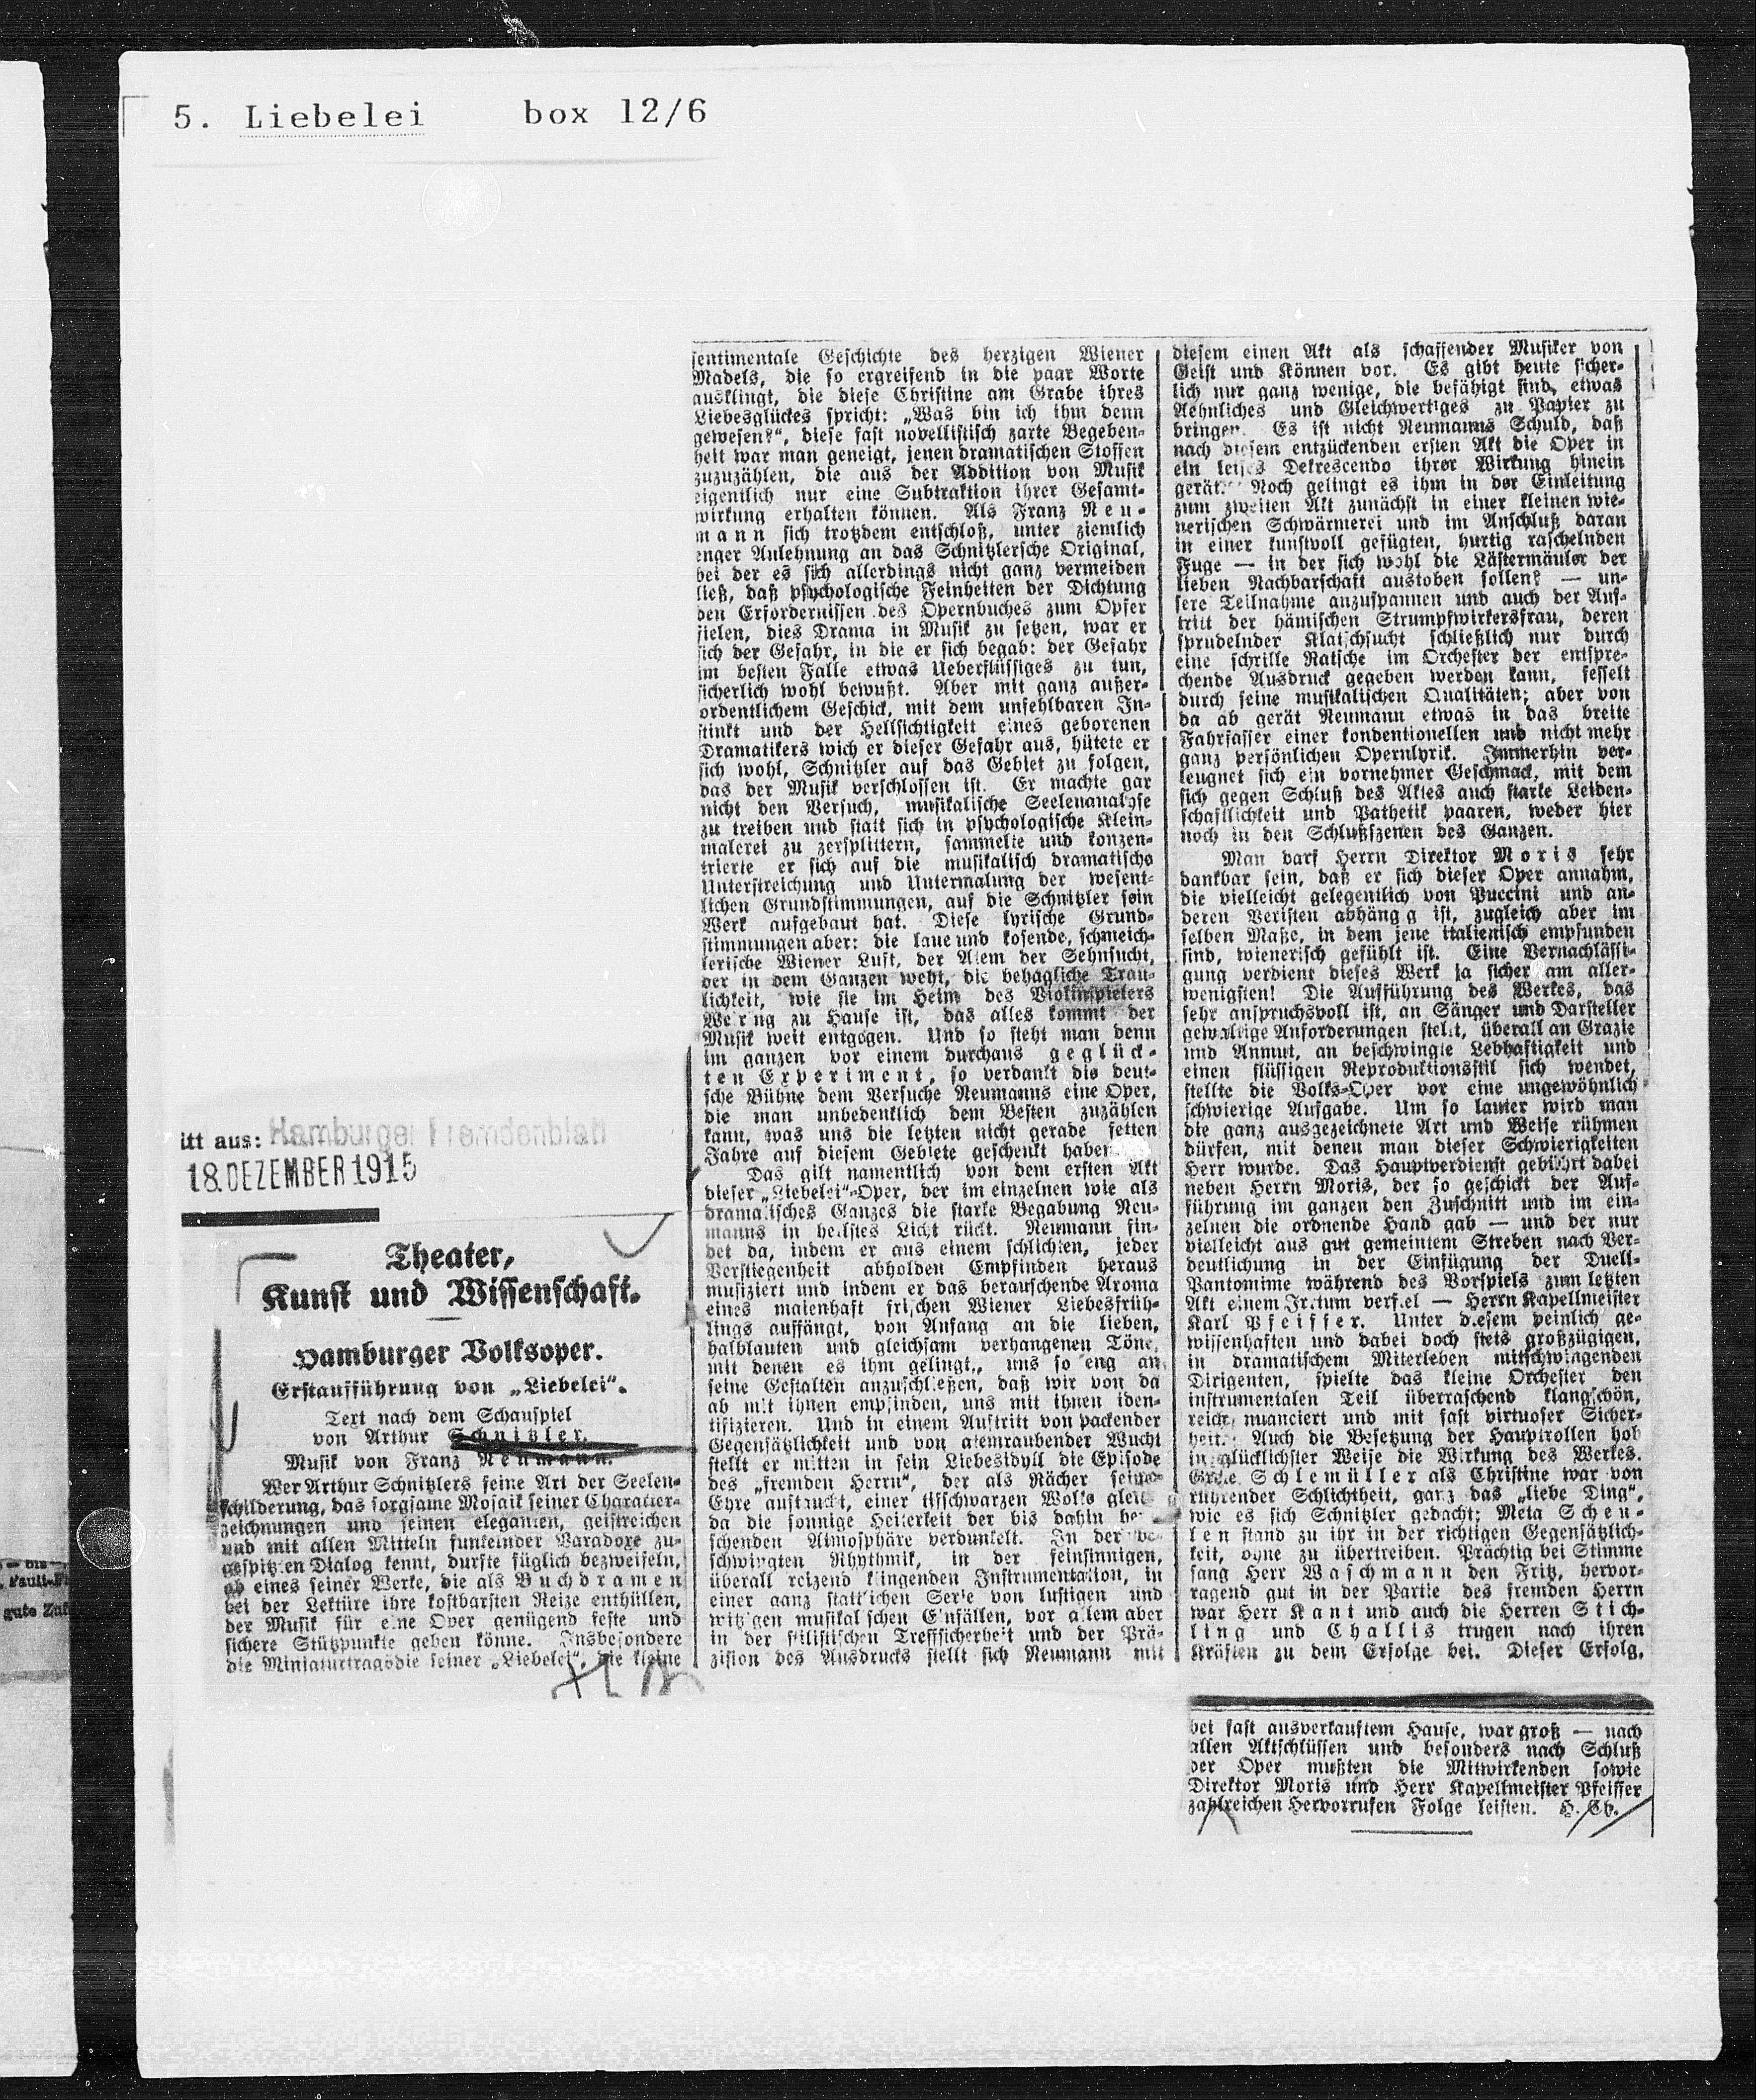 5. Liebelei box 12/6
itt aus: Hamburger Fremdenblatt
18. DEZEMBER 1915
Theater,
Kunst und Wissenschaft.
Hamburger Volksoper.
Erstaufführung von „Liebelei“.
Text nach dem Schauspiel
von Arthur Schnitzler.
Musik von Franz Neumann.
Wer Arthur Schnitzlers feine Art der Seelen-
schilderung, das sorgsame Mosaik seiner Charakter-
zeichnungen und seinen eleganten, geistreichen
und mit allen Mitteln funkelnder Paradoxe zu-
gespitzten Dialog kennt, durfte füglich bezweifeln,
ob eines seiner Werke, die als Buchdramen
bei der Lektüre ihre kostbarsten Reize enthüllen,
der Musik für eine Oper genügend feste und
sichere Stützpunkte geben könne. Insbesondere
die Miniaturtragödie seiner „Liebelei“, die kleine
sentimentale Geschichte des herzigen Wiener
Madels, die so ergreifend in die paar Worte
ausklingt, die diese Christine am Grabe ihres
Liebesglückes spricht: „Was bin ich ihm denn
gewesen?“, diese fast novellistisch zarte Begeben-
heit war man geneigt, jenen dramatischen Stoffen
zuzuzählen, die aus der Addition von Musik
eigentlich nur eine Subtraktion ihrer Gesamt-
wirkung erhalten können. Als Franz Neu-
mann sich trotzdem entschloß, unter ziemlich
enger Anlehnung an das Schnitzlersche Original,
bei der es sich allerdings nicht ganz vermeiden
ließ, daß psychologische Feinheiten der Dichtung
den Erfordernissen des Opernbuches zum Opfer
fielen, dies Drama in Musik zu setzen, war er
sich der Gefahr, in die er sich begab: der Gefahr
im besten Falle etwas Ueberflüssiges zu tun,
sicherlich wohl bewußt. Aber mit ganz außer-
ordentlichem Geschick, mit dem unfehlbaren In-
stinkt und der Hellsichtigkeit eines geborenen
Dramatikers wich er dieser Gefahr aus, hütete er
sich wohl, Schnitzler auf das Gebiet zu folgen,
das der Musik verschlossen ist. Er machte gar
nicht den Versuch, musikalische Seelenanalyse
zu treiben und statt sich in psychologische Klein-
malerei zu zersplittern, sammelte und konzen-
trierte er sich auf die musikalisch dramatische
Unterstreichung und Untermalung der wesent-
lichen Grundstimmungen, auf die Schnitzler sein
Werk aufgebaut hat. Diese lyrische Grund-
stimmungen aber: die laue und kosende, schmeich-
lerische Wiener Luft, der Atem der Sehnsucht,
der in dem Ganzen weht, die behagliche Trau-
lichkeit, wie sie im Heim des Violinspielers
Weiring zu Hause ist, das alles kommt der
Musik weit entgegen. Und so steht man denn
im ganzen vor einem durchaus geglück-
ten Experiment, so verdankt die deut-
sche Bühne dem Versuche Neumanns eine Oper,
die man unbedenklich dem Besten zuzählen
kann, was uns die letzten nicht gerade fetten
Jahre auf diesem Gebiete geschenkt haben
Das gilt namentlich von dem ersten Akt
dieser „Liebelei“-Oper, der im einzelnen wie als
dramatisches Ganzes die starke Begabung Neu-
manns in hellstes Licht rückt. Neumann fin-
det da, indem er aus einem schlichten, jeder
Verstiegenheit abholden Empfinden heraus
musiziert und indem er das berauschende Aroma
eines maienhaft frischen Wiener Liebesfrüh-
lings auffängt, von Anfang an die lieben,
halblauten und gleichsam verhangenen Töne,
mit denen es ihm gelingt, uns so eng an
seine Gestalten anzuschließen, daß wir von da
ab mit ihnen empfinden, uns mit ihnen iden-
tifizieren. Und in einem Auftritt von packender
Gegensätzlichkeit und von atemraubender Wucht
stellt er mitten in sein Liebesidyll die Episode
des „fremden Herrn“, der als Rächer seiner
Ehre auftaucht, einer tiefschwarzen Wolke gleich
da die sonnige Heiterkeit der bis dahin herr-
schenden Atmosphäre verdunkelt. In der be-
schwingten Rhythmik, in der feinsinnigen,
überall reizend klingenden Instrumentation, in
einer ganz stattlichen Serie von lustigen und
witzigen musikalischen Einfällen, vor allem aber
in der stilistischen Treffsicherheit und der Prä-
zision des Ausdrucks stellt sich Neumann mit
diesem einen Akt als schaffender Musiker von
Geist und Können vor. Es gibt heute sicher-
lich nur ganz wenige, die befähigt sind, etwas
Aehnliches und Gleichwertiges zu Papier zu
bringen. Es ist nicht Neumanns Schuld, daß
nach diesem entzückenden ersten Akt die Oper in
ein leises Dekrescendo ihrer Wirkung hinein
gerät. Noch gelingt es ihm in der Einleitung
zum zweiten Akt zunächst in einer kleinen wie-
nerischen Schwärmerei und im Anschluß daran
in einer kunstvoll gefügten, hurtig raschelnden
Fuge — in der sich wohl die Lästermäuler der
lieben Nachbarschaft austoben sollen? — un-
sere Teilnahme anzuspannen und auch der Auf-
tritt der hämischen Strumpfwirkersfrau, deren
sprudelnder Klatschsucht schließlich nur durch
eine schrille Ratsche im Orchester der entspre-
chende Ausdruck gegeben werden kann, fesselt
durch seine musikalischen Qualitäten; aber von
da ab gerät Neumann etwas in das breite
Fahrfasser einer kondentionellen und nicht mehr
ganz persönlichen Opernlyrik. Immerhin ver-
leugnet sich ein vornehmer Geschmack, mit dem
sich gegen Schluß des Aktes auch starke Leiden-
schaftlichkeit und Pathetik paaren, weder hier
noch in den Schlußszenen des Ganzen.
Man darf Herrn Direktor Moris sehr
dankbar sein, daß er sich dieser Oper annahm,
die vielleicht gelegentlich von Puccini und an-
deren Veristen abhängig ist, zugleich aber im
selben Maße, in dem jene italienisch empfunden
sind, wienerisch gefühlt ist. Eine Vernachlässi-
gung verdient dieses Werk ja sicher am aller-
wenigsten! Die Aufführung des Werkes, das
sehr anspruchsvoll ist, an Sänger und Darsteller
gewaltige Anforderungen stellt, überall an Grazie
und Anmut, an beschwingte Lebhaftigkeit und
einen flüssigen Reproduktionsstil sich wendet,
stellte die Volks-Oper vor eine ungewöhnlich
schwierige Aufgabe. Um so lauter wird man
die ganz ausgezeichnete Art und Weise rühmen
dürfen, mit denen man dieser Schwierigkeiten
Herr wurde. Das Hauptverdienst gebührt dabei
neben Herrn Moris, der so geschickt der Auf-
führung im ganzen den Zuschnitt und im ein-
zelnen die ordnende Hand gab — und der nur
vielleicht aus gut gemeintem Streben nach Ver-
deutlichung in der Einfügung der Duell-
Pantomime während des Vorspiels zum letzten
Akt einem Irrtum verfiel — Herrn Kapellmeister
Karl Pfeiffer. Unter diesem peinlich ge-
wissenhaften und dabei doch stets großzügigen,
in dramatischem Miterleben mitschwingenden
Dirigenten, spielte das kleine Orchester den
instrumentalen Teil überraschend klangschön,
reich nuanciert und mit fast virtuoser Sicher-
heit. Auch die Besetzung der Hauptrollen hob
in glücklichster Weise die Wirkung des Werkes.
Grete Schlemüller als Christine war von
rührender Schlichtheit, ganz das „liebe Ding“,
wie es sich Schnitzler gedacht; Meta Scheu-
len stand zu ihr in der richtigen Gegensätzlich-
keit, ohne zu übertreiben. Prächtig bei Stimme
sang Herr Waschmann den Fritz, hervor-
ragend gut in der Partie des fremden Herrn
war Herr Kant und auch die Herren Stich-
ling und Challis trugen nach ihren
Kräften zu dem Erfolge bei. Dieser Erfolg,
bei fast ausverkauftem Hause, war groß — nach
allen Aktschlüssen und besonders nach Schluß
der Oper mußten die Mitwirkenden sowie
Direktor Moris und Herr Kapellmeister Pfeiffer
zahlreichen Hervorrufen Folge leisten. H. Ch.